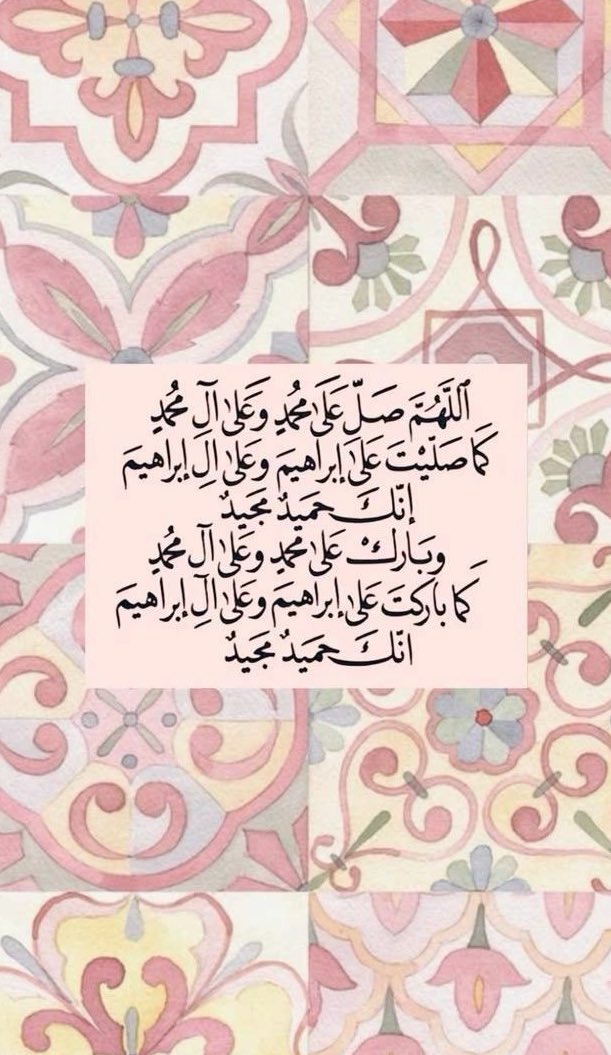 ٱللَّهُمَّ صَلِّ عَلَىٰ مُحَمَّدٍ وَعَلَىٰ آلِ مُحَمَّدٍ
كَمَا صَلَّيْتَ عَلَىٰ إبراهيمَ وَعَلَىٰ الِ إبراهيمَ
إنّكَ حميدٌ مجيدٌ
وبَارِكْ عَلَىٰ مُحَمَّدٍ وَعَلَىٰ آلِ مُحَمَّدٍ
كَمَا باركتَ عَلَىٰ إبراهيمَ وَعَلَىٰ آلِ إبراهيمَ
انّكَ حميدٌ مجيدٌ